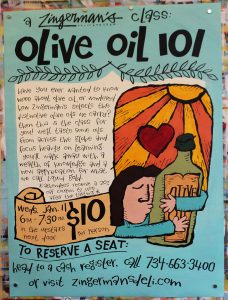 a Zingerman's class:
Olive Oil 101
Have you ever wanted to know
more about olive oil or wondered
how Zingerman's selects the
distinctive olive oils we carry?
then this is the class for
you! we'll taste some oils
from across the globe and
focus heavily on learning.
you'll walk away with a
wealth of knowledge and a
new appreciation for what
we call liquid gold!
weds. Jan. 11
6pm - 7:30pm
in the upstairs
next door
$10
per person
OLIVE
OIL
TO RESERVE A SEAT:
head to a cash register, call 734-663-3400
or visit zingermansdeli.com